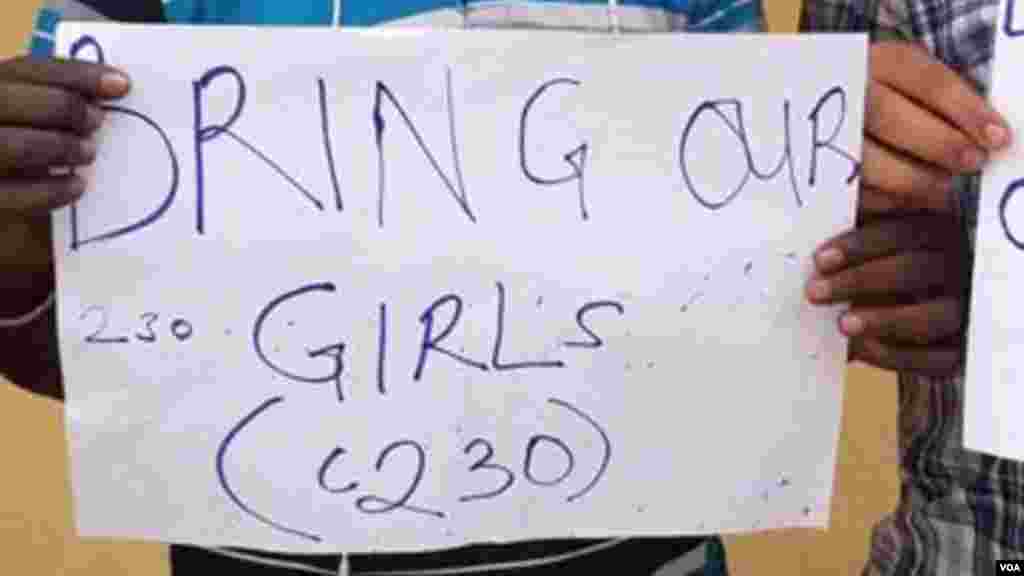 BRING OUR
230 GIRLS
(c230)
VOA